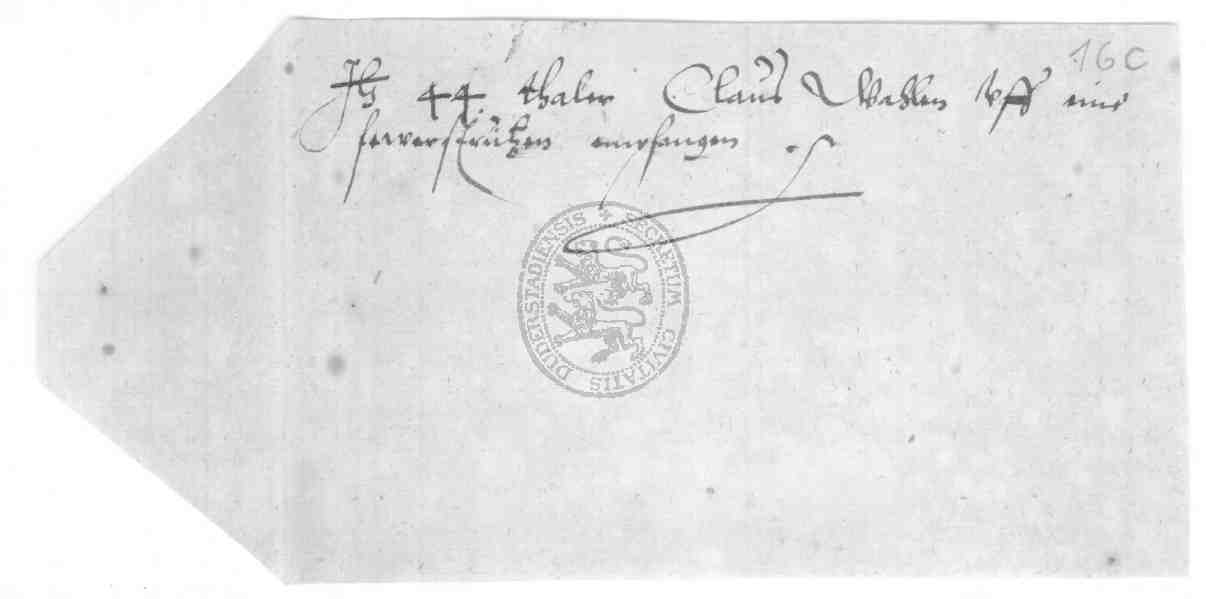 44 thaler Claus Wahlen vff eine
fewersprützen empfangen
16 C
SECRETUM CIVITATIS DUDERSTADIENSIS